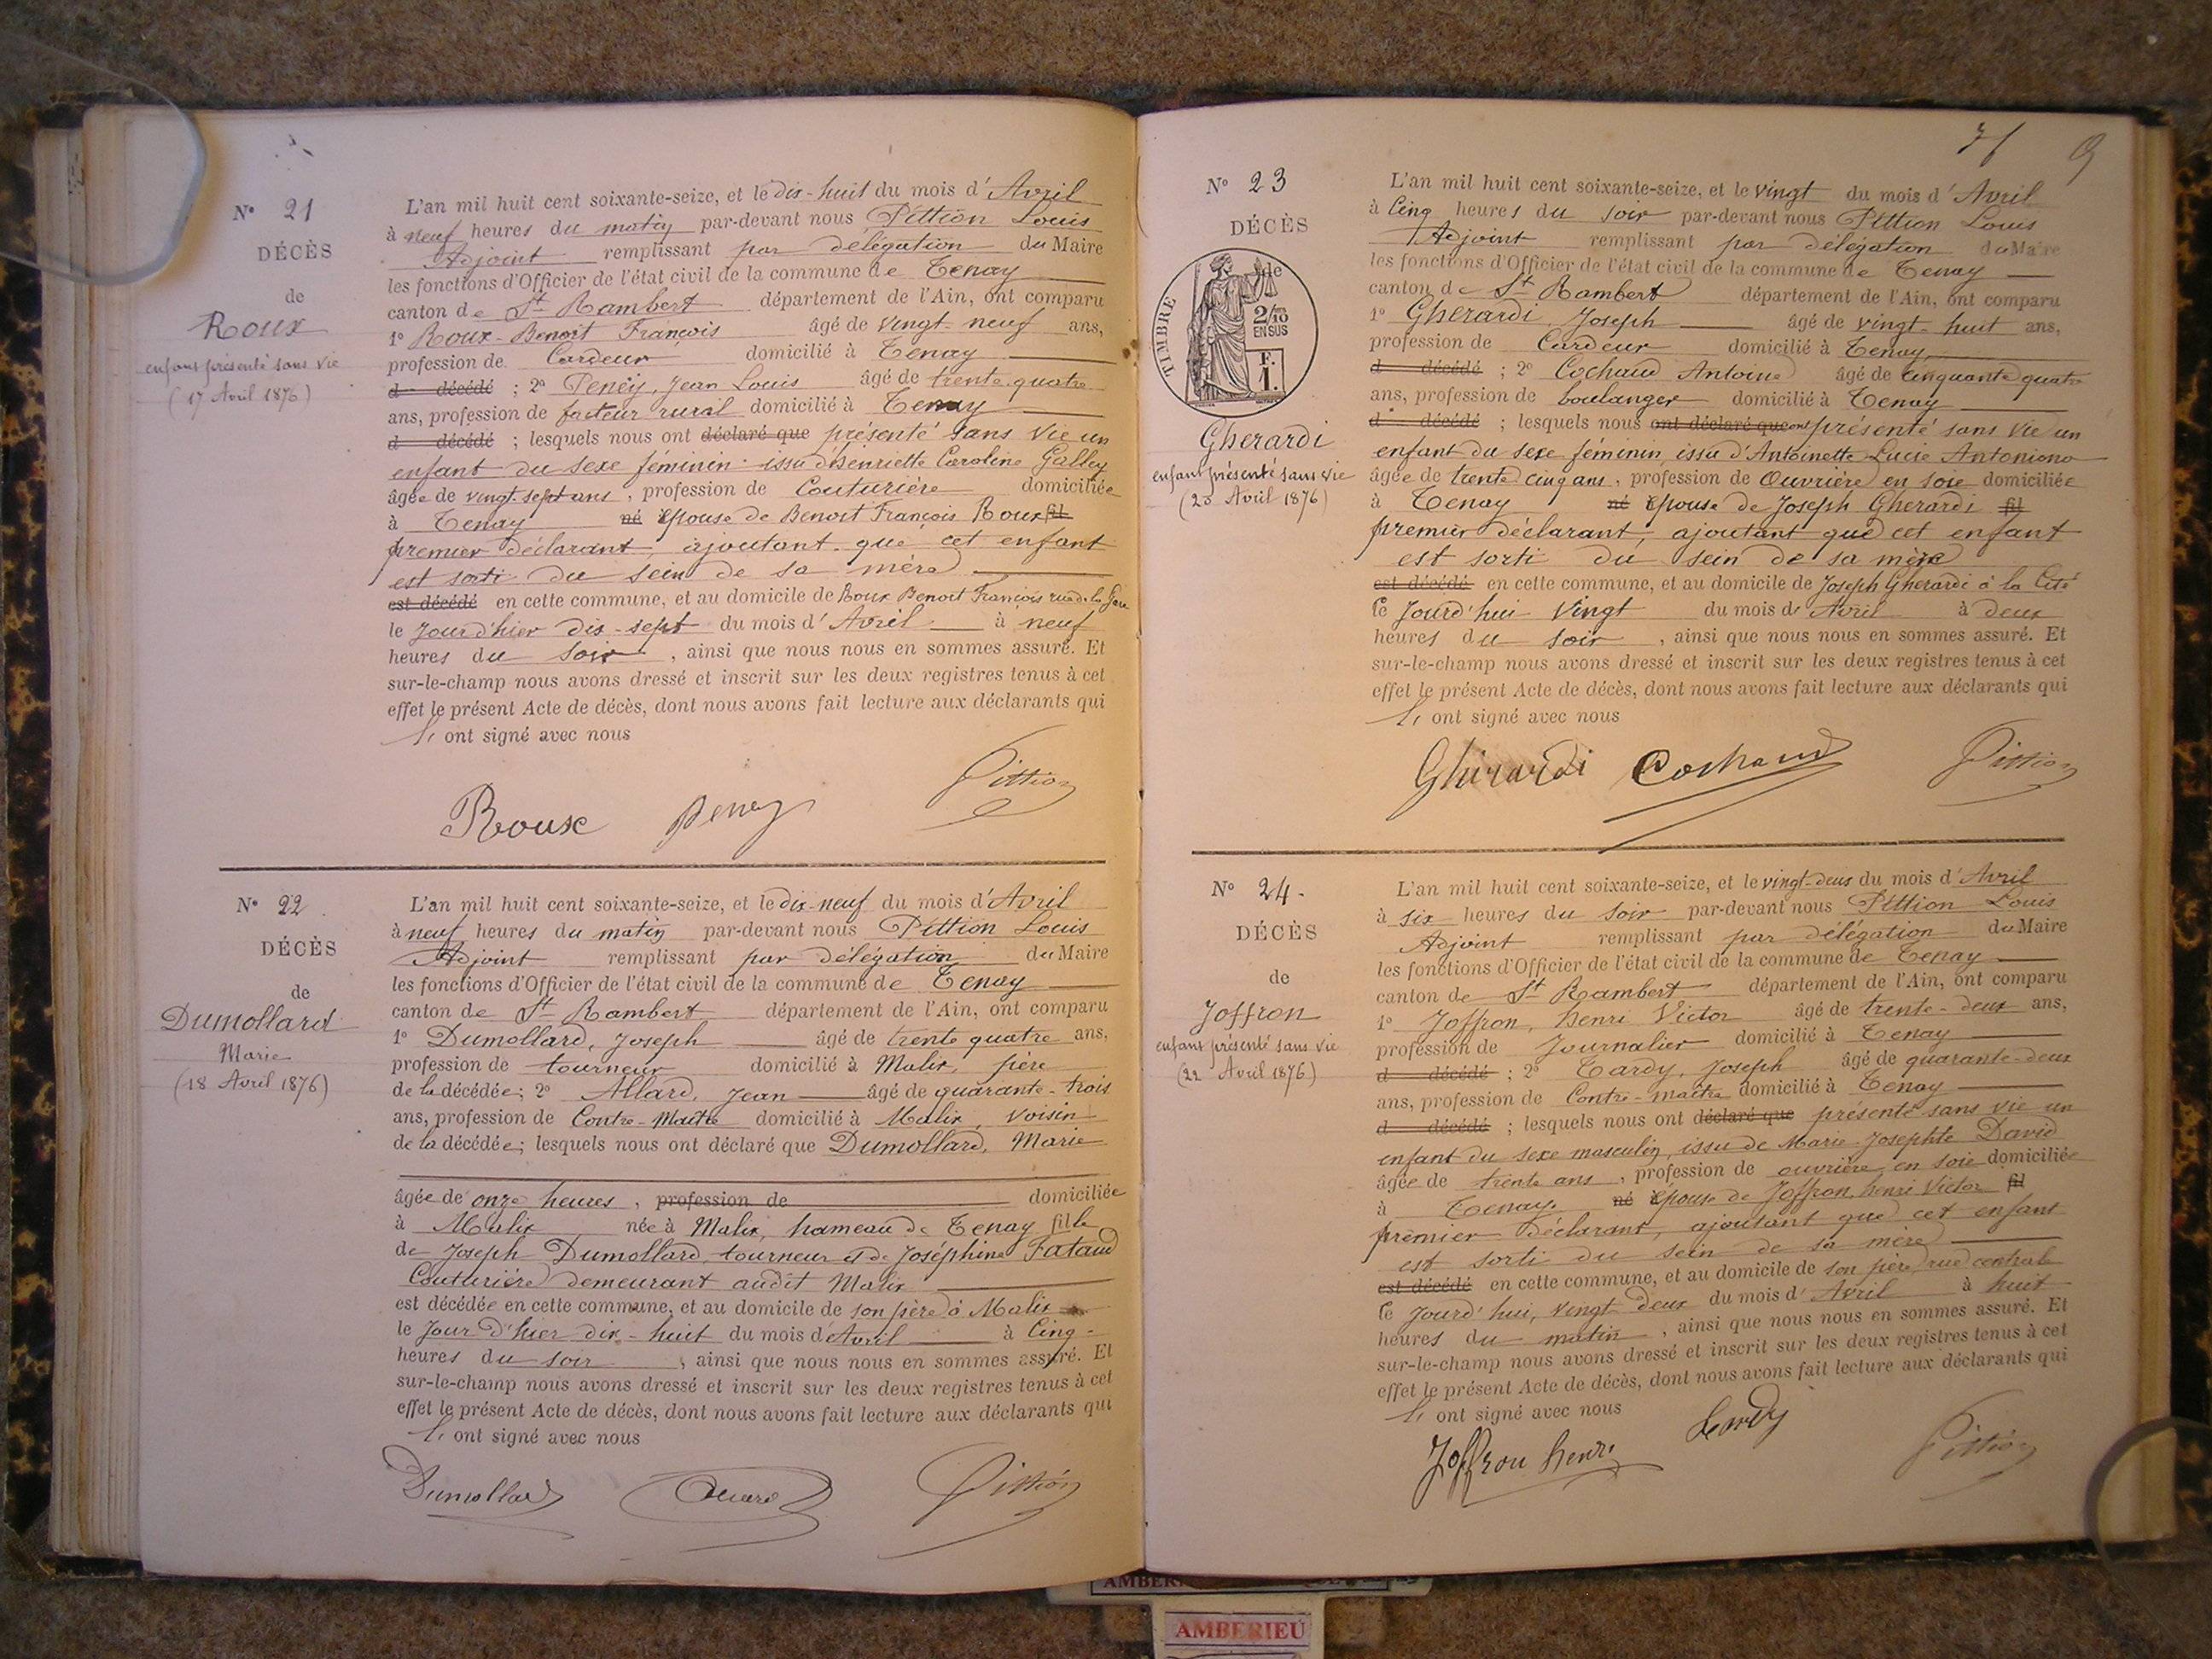 N° 21
DÉCÈS
de
Roux
enfant présenté sans vie
(17 Avril 1876)
L'an mil huit cent soixante-seize, et le dix-huit du mois d'Avril
à neuf heures du matin par-devant nous Pittion Louis
Adjoint remplissant par délégation du Maire
les fonctions d'Officier de l'état civil de la commune de Tenay
canton de St Rambert département de l'Ain, ont comparu
1° Roux Benoit François âgé de vingt-neuf ans,
profession de Cardeur domicilié à Tenay
d décédé ; 2° Peney, Jean Louis âgé de trente quatre
ans, profession de facteur rural domicilié à Tenay
d décédé ; lesquels nous ont déclaré que présenté sans vie un
enfant du sexe féminin issu d'henriette Caroline Galley
âgée de vingt sept ans, profession de Couturière domiciliée
à Tenay né épouse de Benoit François Roux fil
premier déclarant, ajoutant que cet enfant
est sorti du sein de sa mère
est décédé en cette commune, et au domicile de Roux Benoit François rue de la Gare
le Jour d'hier dix-sept du mois d'Avril à neuf
heures du soir, ainsi que nous nous en sommes assuré. Et
sur-le-champ nous avons dressé et inscrit sur les deux registres tenus à cet
effet le présent Acte de décès, dont nous avons fait lecture aux déclarants qui
ont signé avec nous
Roux Peney Pittion
N° 22
DÉCÈS
de
Dumollard
Marie
(18 Avril 1876)
L'an mil huit cent soixante-seize, et le dix-neuf du mois d'Avril
à neuf heures du matin par-devant nous Pittion Louis
Adjoint remplissant par délégation du Maire
les fonctions d'Officier de l'état civil de la commune de Tenay
canton de St Rambert département de l'Ain, ont comparu
1° Dumollard, Joseph âgé de trente quatre ans,
profession de tourneur domicilié à Malix, père
de la décédée ; 2° Allard, Jean âgé de quarante-trois
ans, profession de Contre-Maître domicilié à Malix, voisin
de la décédée ; lesquels nous ont déclaré que Dumollard, Marie
âgée de onze heures, profession de domiciliée
à Malix née à Malix, hameau de Tenay fille
de Joseph Dumollard, tourneur et de Joséphine Fataud
Couturière demeurant audit Malix
est décédée en cette commune, et au domicile de son père à Malix
le Jour d'hier dix-huit du mois d'Avril à Cinq
heures du soir, ainsi que nous nous en sommes assuré. Et
sur-le-champ nous avons dressé et inscrit sur les deux registres tenus à cet
effet le présent Acte de décès, dont nous avons fait lecture aux déclarants qui
ont signé avec nous
Dumollard Pittion
71 9
N° 23
DÉCÈS
de
TIMBRE
2/10
EN SUS
F.
1.
Gherardi
enfant présenté sans vie
(20 Avril 1876)
L'an mil huit cent soixante-seize, et le vingt du mois d'Avril
à Cinq heures du soir par-devant nous Pittion Louis
Adjoint remplissant par délégation du Maire
les fonctions d'Officier de l'état civil de la commune de Tenay
canton de St Rambert département de l'Ain, ont comparu
1° Gherardi Joseph âgé de vingt-huit ans,
profession de Cardeur domicilié à Tenay
d décédé ; 2° Cochaud Antoine âgé de Cinquante quatre
ans, profession de boulanger domicilié à Tenay
d décédé ; lesquels nous ont déclaré que ont présenté sans vie un
enfant du sexe féminin, issu d'Antoinette Lucie Antoniono
âgée de trente cinq ans, profession de Ouvrière en soie domiciliée
à Tenay né épouse de Joseph Gherardi fil
premier déclarant, ajoutant que cet enfant
est sorti du sein de sa mère
est décédé en cette commune, et au domicile de Joseph Gherardi à la Cité
le Jourd'hui vingt du mois de Avril à deux
heures du soir, ainsi que nous nous en sommes assuré. Et
sur-le-champ nous avons dressé et inscrit sur les deux registres tenus à cet
effet le présent Acte de décès, dont nous avons fait lecture aux déclarants qui
ont signé avec nous
Ghirardi Cochaud Pittion
N° 24.
DÉCÈS
de
Joffron
enfant présenté sans vie
(22 Avril 1876)
L'an mil huit cent soixante-seize, et le vingt-deux du mois d'Avril
à six heures du soir par-devant nous Pittion Louis
Adjoint remplissant par délégation du Maire
les fonctions d'Officier de l'état civil de la commune de Tenay
canton de St Rambert département de l'Ain, ont comparu
1° Joffron, henri Victor âgé de trente-deux ans,
profession de Journalier domicilié à Tenay
d décédé ; 2° Tardy, Joseph âgé de quarante-deux
ans, profession de Contre-maître domicilié à Tenay
d décédé ; lesquels nous ont déclaré que présenté sans vie un
enfant du sexe masculin, issu de Marie Josephte David
âgée de trente ans, profession de ouvrière en soie domiciliée
à Tenay, né épouse de Joffron henri Victor fil
premier déclarant, ajoutant que cet enfant
est sorti du sein de sa mère
est décédé en cette commune, et au domicile de son père rue centrale
le Jourd'hui, vingt deux du mois d'Avril à huit
heures du matin, ainsi que nous nous en sommes assuré. Et
sur-le-champ nous avons dressé et inscrit sur les deux registres tenus à cet
effet le présent Acte de décès, dont nous avons fait lecture aux déclarants qui
ont signé avec nous
Joffron henri Pittion
AMBERIEU